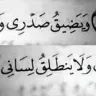 وَيَضِيقُ صَدْرِي وَ
وَلَا يَنطَلِقُ لِسَانِي